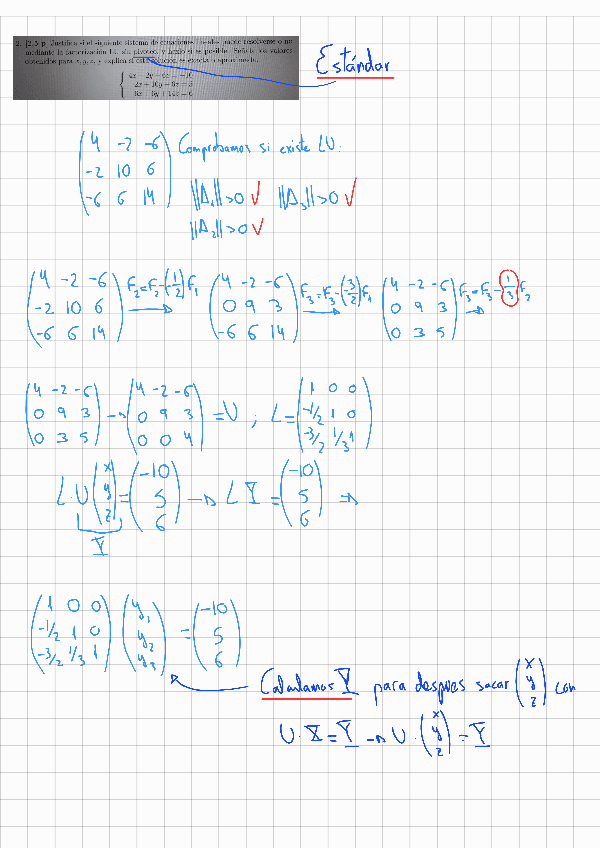 2. [2.5 p] Justifica si el siguiente sistema de ecuaciones lineales puede resolverse o no
mediante la factorización LU sin pivoteo, y hazlo si es posible. Señala los valores
obtenidos para x, y, z, y explica si esta solución es exacta o aproximada.
4x − 2y − 6z = −10
−2x + 10y + 6z = 5
−6x + 6y + 14z = 6
Estándar
(4 -2 -6
-2 10 6
-6 6 14) Comprobamos si existe LU:
||Δ₁||>0 ✓ ||Δ₃||>0 ✓
||Δ₂||>0 ✓
(4 -2 -6
-2 10 6
-6 6 14) F₂=F₂-(-1/2)F₁ → (4 -2 -6
0 9 3
-6 6 14) F₃=F₃-(-3/2)F₁ → (4 -2 -6
0 9 3
0 3 5) F₃=F₃-1/3 F₂ →
(4 -2 -6
0 9 3
0 3 5) → (4 -2 -6
0 9 3
0 0 4) =U ; L= (1 0 0
-1/2 1 0
-3/2 1/3 1)
L·U (x
y
z) = (-10
5
6) → L Y = (-10
5
6) ⇒
Y
(1 0 0
-1/2 1 0
-3/2 1/3 1) (y₁
y₂
y₃) = (-10
5
6)
Calculamos Y para despues sacar (x
y
z) con
U·X=Y → U·(x
y
z)=Y